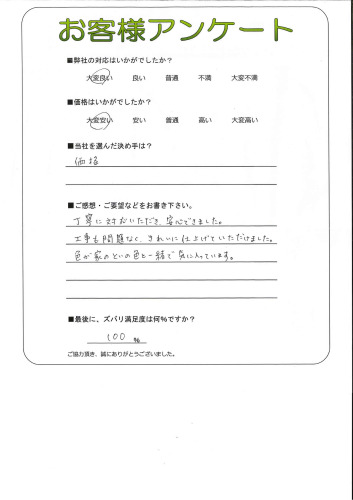 お客様アンケート
■弊社の対応はいかがでしたか？
大変良い 良い 普通 不満 大変不満
■価格はいかがでしたか？
大変安い 安い 普通 高い 大変高い
■当社を選んだ決め手は？
価格
■ご感想・ご要望などをお書き下さい。
丁寧に対応いただき、安心できました。
工事も問題なく、きれいに仕上げていただけました。
色が家のといの色と一緒で気に入っています。
■最後に、ズバリ満足度は何％ですか？
100 %
ご協力頂き、誠にありがとうございました。